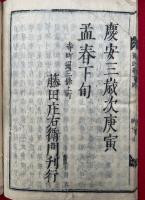 慶安三歳次庚寅
孟春下旬
寺町通三條上町
藤田庄右衛門刊行